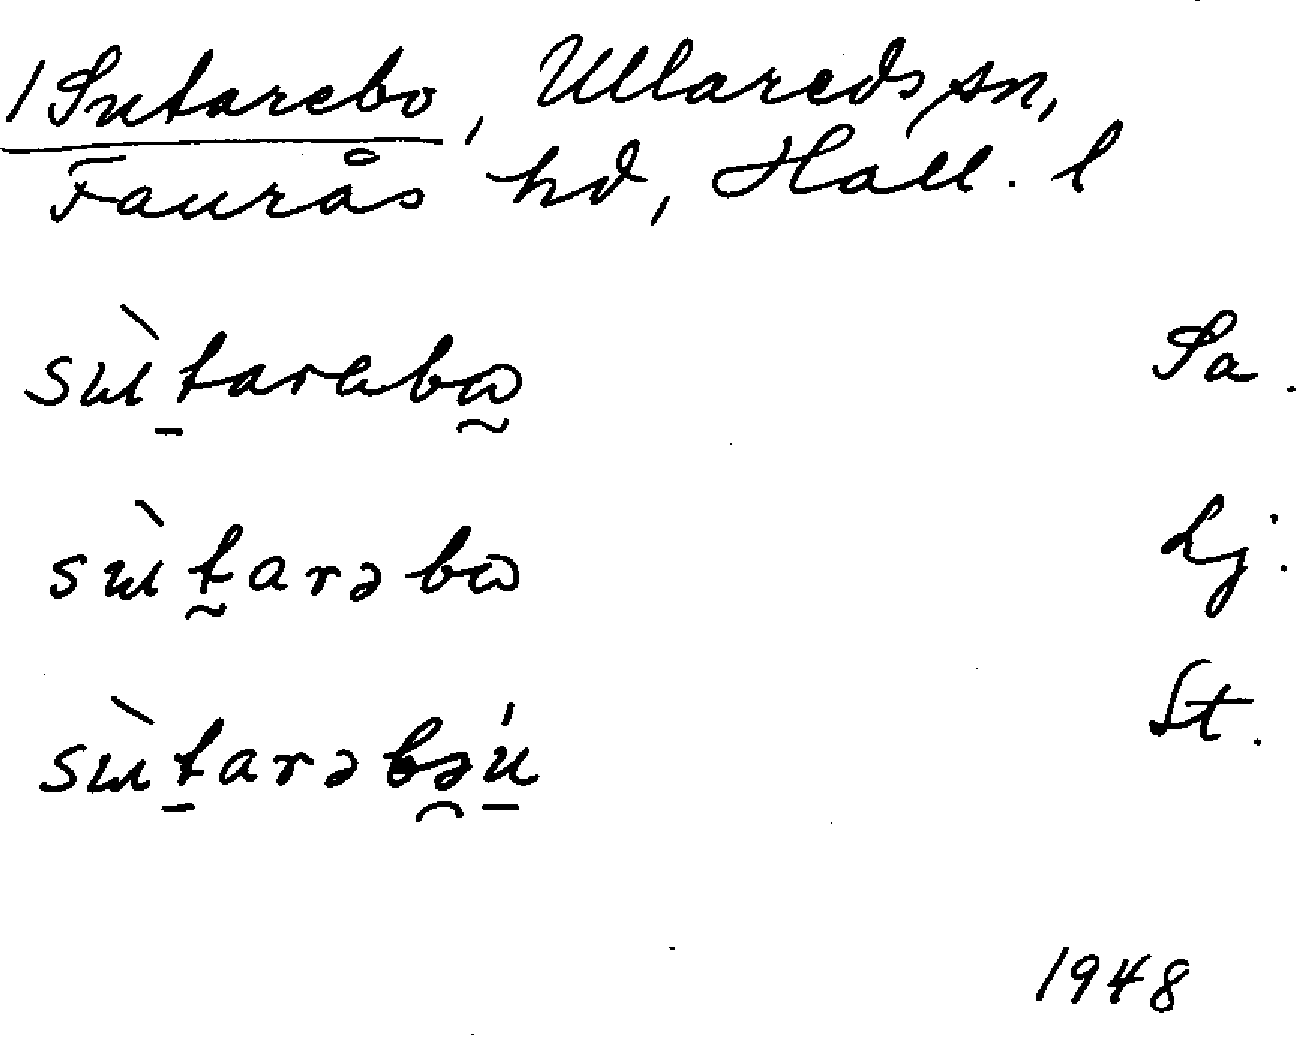 /Sutarebo, Ullareds sn,
Faurås hd, Hall. l
sɯ̀tarɐbꞷ Sa.
sɯ̀tarəbꞷ Lj.
sɯ̀tarəbəú St.
1948